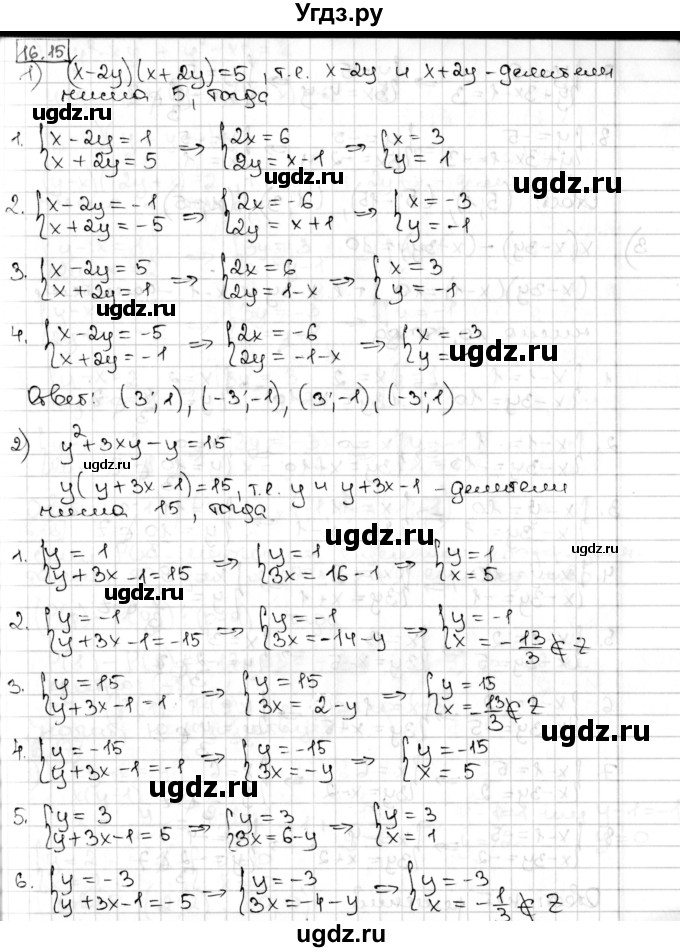 Угдз.ру
16.15
1) (x-2y)(x+2y)=5, т.е. x-2y и x+2y - делители
числа 5, тогда
ugdz.ru
1. {x-2y=1 x+2y=5 ⇒ {2x=6 2y=x-1 ⇒ {x=3 y=1
ugdz.ru ugdz.ru
2. {x-2y=-1 x+2y=-5 ⇒ {2x=-6 2y=x+1 ⇒ {x=-3 y=-1
3. {x-2y=5 x+2y=1 ⇒ {2x=6 2y=1-x ⇒ {x=3 y=-1
4. {x-2y=-5 x+2y=-1 ⇒ {2x=-6 2y=-1-x ⇒ {x=-3 y=
ugdz.ru
Ответ: (3;1), (-3;-1), (3;-1), (-3;1)
2) y²+3xy-y=15
ugdz.ru
y(y+3x-1)=15, т.е. y и y+3x-1 - делители
числа 15, тогда
ugdz.ru
1. {y=1 y+3x-1=15 ⇒ {y=1 3x=16-1 ⇒ {y=1 x=5
ugdz.ru
ugdz.ru
2. {y=-1 y+3x-1=-15 ⇒ {y=-1 3x=-14-y ⇒ {y=-1 x=-13/3 ∉ Z
ugdz.ru
3. {y=15 y+3x-1=1 ⇒ {y=15 3x=2-y ⇒ {y=15 x=-13/3 ∉ Z
ugdz.ru
4. {y=-15 y+3x-1=-1 ⇒ {y=-15 3x=-y ⇒ {y=-15 x=5
ugdz.ru
5. {y=3 y+3x-1=5 ⇒ {y=3 3x=6-y ⇒ {y=3 x=1
ugdz.ru
6. {y=-3 y+3x-1=-5 ⇒ {y=-3 3x=-4-y ⇒ {y=-3 x=-1/3 ∉ Z
ugdz.ru